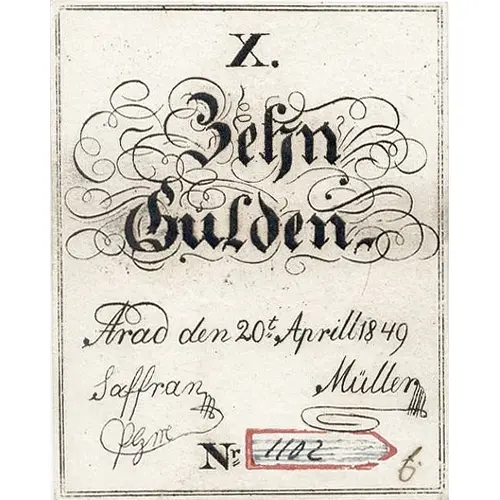 X.
Zehn
Gulden.
Arad den 20t. Aprill 1849
Saffran Müller
Nr. 1102